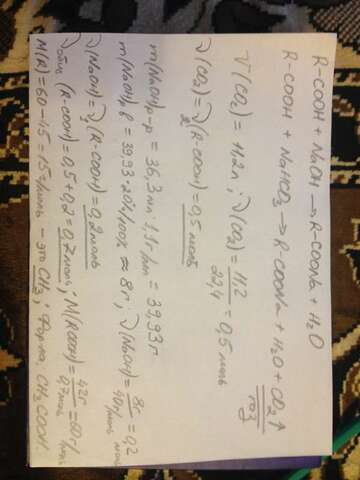 R-COOH + NaOH → R-COONa + H₂O
R-COOH + NaHCO₃ → R-COONa + H₂O + CO₂↑
газ
V(CO₂) = 11,2л ; ν(CO₂) = 11,2/22,4 = 0,5 моль
ν(CO₂) = ν₂(R-COOH) = 0,5 моль
m(NaOH)р-р = 36,3 мл · 1,1 г/мл = 39,93 г
m(NaOH)р.в = 39,93 · 20%/100% ≈ 8г ; ν(NaOH) = 8г/40г/моль = 0,2 моль
ν(NaOH) = ν₁(R-COOH) = 0,2 моль
ν общ (R-COOH) = 0,5 + 0,2 = 0,7 моль ; M(RCOOH) = 42г/0,7моль = 60г/моль
M(R) = 60 - 45 = 15 г/моль - это CH₃ ; форм-ла CH₃COOH